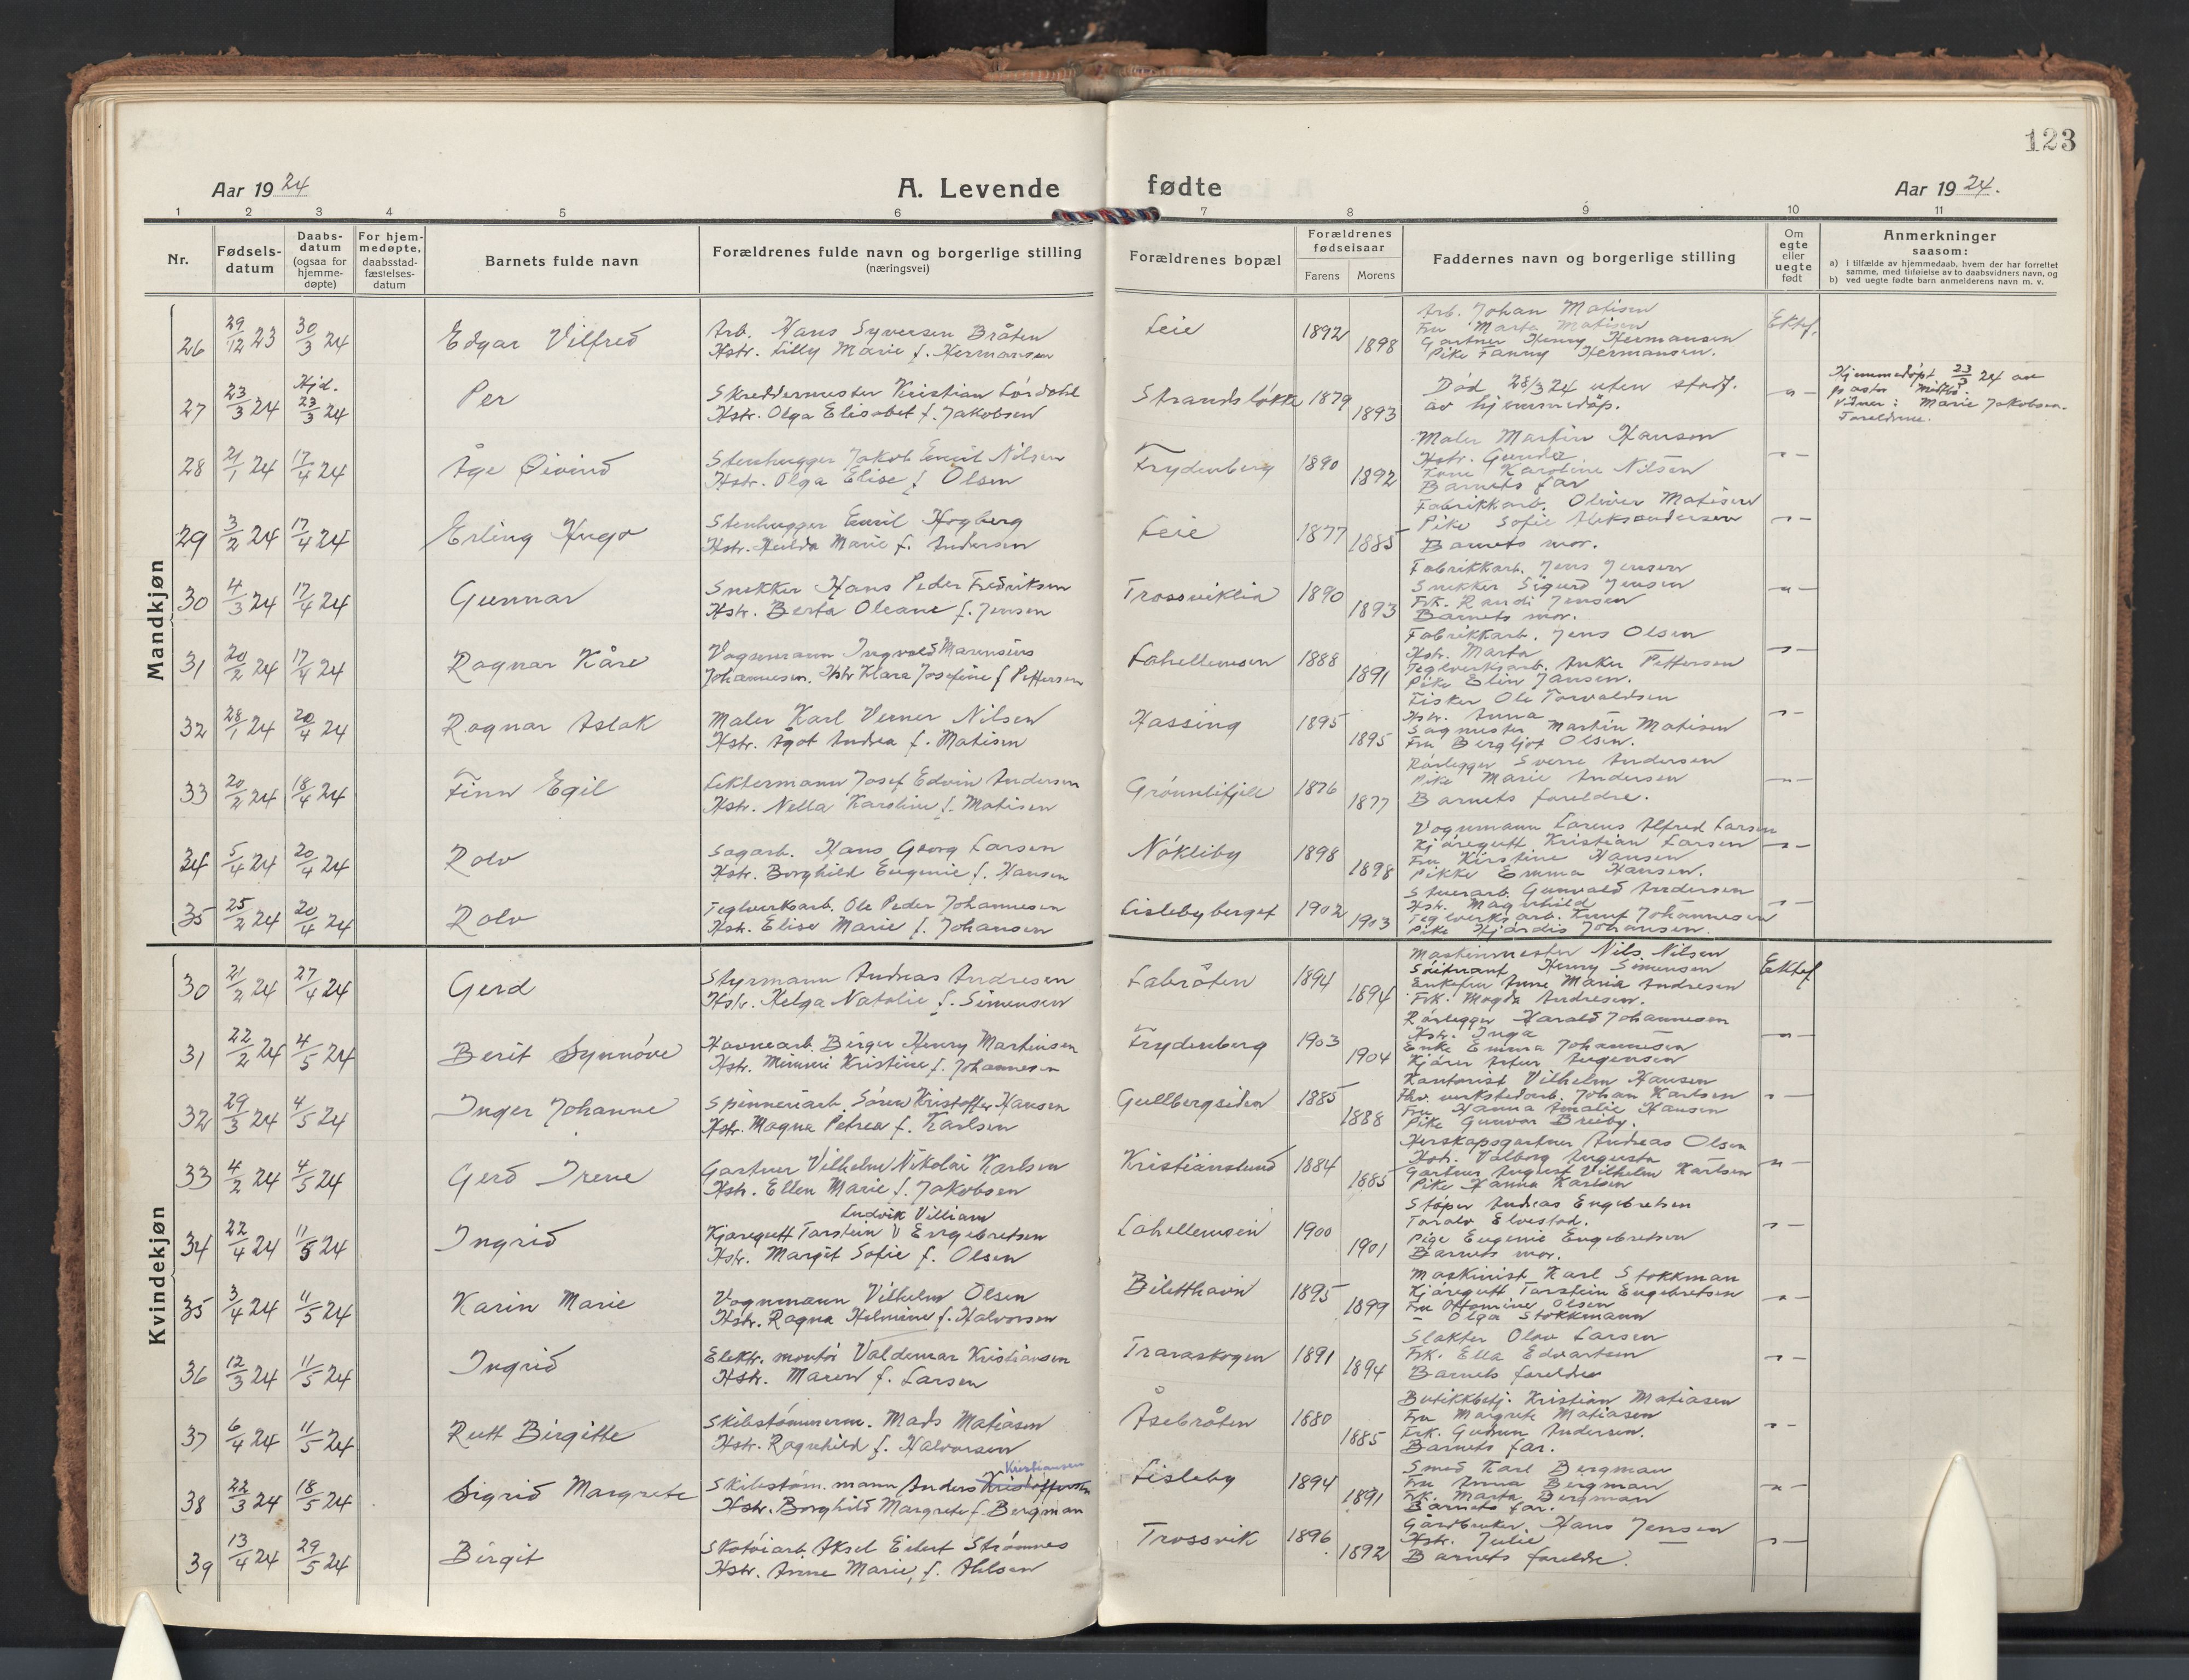 123
Aar 19 24
A. Levende fødte
Aar 19 24.
1 2 3 4 5 6 7 8 9 10 11
Nr.
Fødsels-
datum
Daabs-
datum
(ogsaa for
hjemme-
døpte)
For hjem-
medøpte,
daabsstad-
fæstelses-
datum
Barnets fulde navn
Forældrenes fulde navn og borgerlige stilling
(næringsvei)
Forældrenes bopæl
Forældrenes
fødselsaar
Farens Morens
Faddernes navn og borgerlige stilling
Om
egte
eller
uegte
født
Anmerkninger
saasom:
a) i tilfælde av hjemmedaab, hvem der har forrettet
samme, med tilføielse av to daabsvidners navn, og
b) ved uegte fødte barn anmelderens navn m. v.
Mandkjøn
26 29/12 23 30/3 24 Edgar Vilfred
Arb. Hans Syversen Bråten
Hstr. Lilly Marie f. Hermansen
Leie 1892 1898
Arb. Johan Matisen
Fru Marta Matisen
Gartner Henry Hermansen
Pike Fanny Hermansen.
Ektef.
27 23/3 24 Hjd. 23/3 24 Per
Skreddermester Kristian Lördahl
Hstr. Olga Elisabet f. Jakobsen
Strandsløkke 1879 1893
Död 28/3 24 uten stadf.
av hjemmedåp.
-"-
Hjemmedöpt 23/3 24 av
pastor
Vidner: Marie Jakobsen.
Foreldrene.
28 21/1 24 17/4 24 Åge Öivind
Stenhugger Jakob Emil Nilsen
Hstr. Olga Elise f Olsen
Frydenberg 1890 1892
Maler Martin Hanson
Hstr. Gunda
Fone Karoline Nilsen
Barnets far
-"-
29 3/2 24 17/4 24 Erling Hugo
Stenhugger Emil Hogberg
Hstr. Hulda Marie f. Andersen
Leie 1877 1885
Fabrikkarb. Oliver Matisen
Pike Sofie Aleksandersen
Barnets mor.
-"-
30 4/3 24 17/4 24 Gunnar
Snekker Hans Peder Fredriksen
Hstr. Berta Oleane f. Jensen
Trossviklia 1890 1893
Fabrikkarb. Jens Jensen
Snekker Sigurd Jensen
Frk. Randi Jensen
Barnets mor.
-"-
31 20/2 24 17/4 24 Ragnar Kåre
Vognmann Ingvald Marensius
Johannesen. Hstr Klara Josefine f Pettersen
Lahellemoen 1888 1891
Fabrikkarb. Jens Olsen
Hstr. Marta
Teglverksarb. Anker Pettersen
Pike Elin Jansen.
-"-
32 28/1 24 20/4 24 Ragnar Aslak
Maler Karl Verner Nilsen
Hstr. Ågot Andrea f. Matisen
Hassing 1895 1895
Fisker Ole Torvaldsen
Hstr. Anna
Sagmester Martin Matisen
Fru Bergljot Olsen.
-"-
33 20/2 24 18/4 24 Finn Egil
Lektermann Josef Edvin Andersen
Hstr. Nella Karoline f. Matisen
Grønnlifjell 1876 1877
Rörlegger Sverre Andersen
Pike Marie Andersen
Barnets foreldre.
-"-
34 5/4 24 20/4 24 Rolv
Sagarb. Hans Georg Larsen
Hstr. Borghild Eugenie f. Hansen
Nökleby 1898 1898
Vognmann Lorens Alfred Larsen
Kjöregutt Kristian Larsen
Fru Kirstine Hansen
Pike Emma Hansen.
-"-
35 25/2 24 20/4 24 Rolv
Teglverksarb. Ole Peder Johannesen
Hstr. Elise Marie f. Johansen
Lislebyberget 1902 1903
Stuerarb. Gunvald Andersen
Hstr. Magnhild
Teglverksarb. Knut Johannesen
Pike Hjördis Johansen.
-"-
Kvindekjøn
30 21/2 24 27/4 24 Gerd
Styrmann Andreas Andresen
Hstr. Helga Natalie f. Simensen
Labråten 1894 1894
Maskinmester Nils Nilsen
Henry Simensen
Enkefru Anne Maria Andresen
Frk. Magda Andresen.
Ektef
31 22/2 24 4/5 24 Berit Synnöve
Havnearb. Birger Henry Martinsen
Hstr. Minni Kristine f. Johannesen
Frydenberg 1903 1904
Rörlegger Harald Johannesen
Hstr. Inga
Enke Emma Johannesen
Kjörer Artur Jugensen
-"-
32 29/3 24 4/5 24 Inger Johanne
Spinneriarb. Sören Kristoffer Hansen
Hstr. Magna Petrea f. Karlsen
Gullbergsiden 1885 1888
Kontorist Vilhelm Hansen
Fhv. verkstedarb. Johan Karlsen
Fru Hanna Amalie Hansen
Pike Gunvor Breiby.
-"-
33 4/2 24 4/5 24 Gerd Irene
Gartner Vilhelm Nikolai Karlsen
Hstr. Ellen Marie f. Jakobsen
Kristianslund 1884 1885
Herskapsgartner Andreas Olsen
Hstr. Valborg Augusta
Gartner August Vilhelm Karlsen
Pike Hanna Karlsen
-"-
34 22/4 24 11/5 24 Ingrid
Ludvik Villiam
Kjöregutt Torstein V Engebretsen
Hstr. Margit Sofie f. Olsen
Lahellemoen 1900 1901
Stöper Andreas Engebretsen
Toralv Elvestad.
Pige Eugenie Engebretsen
Barnets mor.
-"-
35 3/4 24 11/5 24 Karin Marie
Vognmann Vilhelm Olsen
Hstr. Ragna Helmine f. Halvorsen
Biletthavn 1895 1899
Maskinist Karl Stokkman
Kjöregutt Torstein Engebretsen
Fru Ottomine Olsen
- Olga Stokkmann
-"-
36 12/3 24 11/5 24 Ingrid
Elektr. montör Valdemar Kristiansen
Hstr. Maren f. Larsen
Traraskogen 1891 1894
Slakter Olav Larsen
Frk. Ella Edvartsen
Barnets foreldre
-"-
37 6/4 24 11/5 24 Rutt Birgitte
Skibstömmerm. Mads Matiasen
Hstr. Ragnhild f. Halvorsen
Åsebråten 1880 1885
Butikkbetj. Kristian Matiasen
Fru Margrete Matiasen
Frk. Gudrun Andersen.
Barnets far.
-"-
38 22/3 24 18/5 24 Sigrid Margrete
Kristiansen
Skibstöm. mann Anders Kristoffersen
Hstr. Borghild Margrete f. Bergman
Lisleby 1894 1891
Smed Karl Bergman
Fru Anna Bergman
Frk. Marta Bergman
Barnets far.
-"-
39 13/4 24 29/5 24 Birgit
Skotöiarb. Aksel Eilert Strömnes
Hstr. Anne Marie, f. Ahlsen
Trossvik 1896 1892
Gårdbruker Hans Jensen
Hstr. Julie —
Barnets foreldre.
-"-